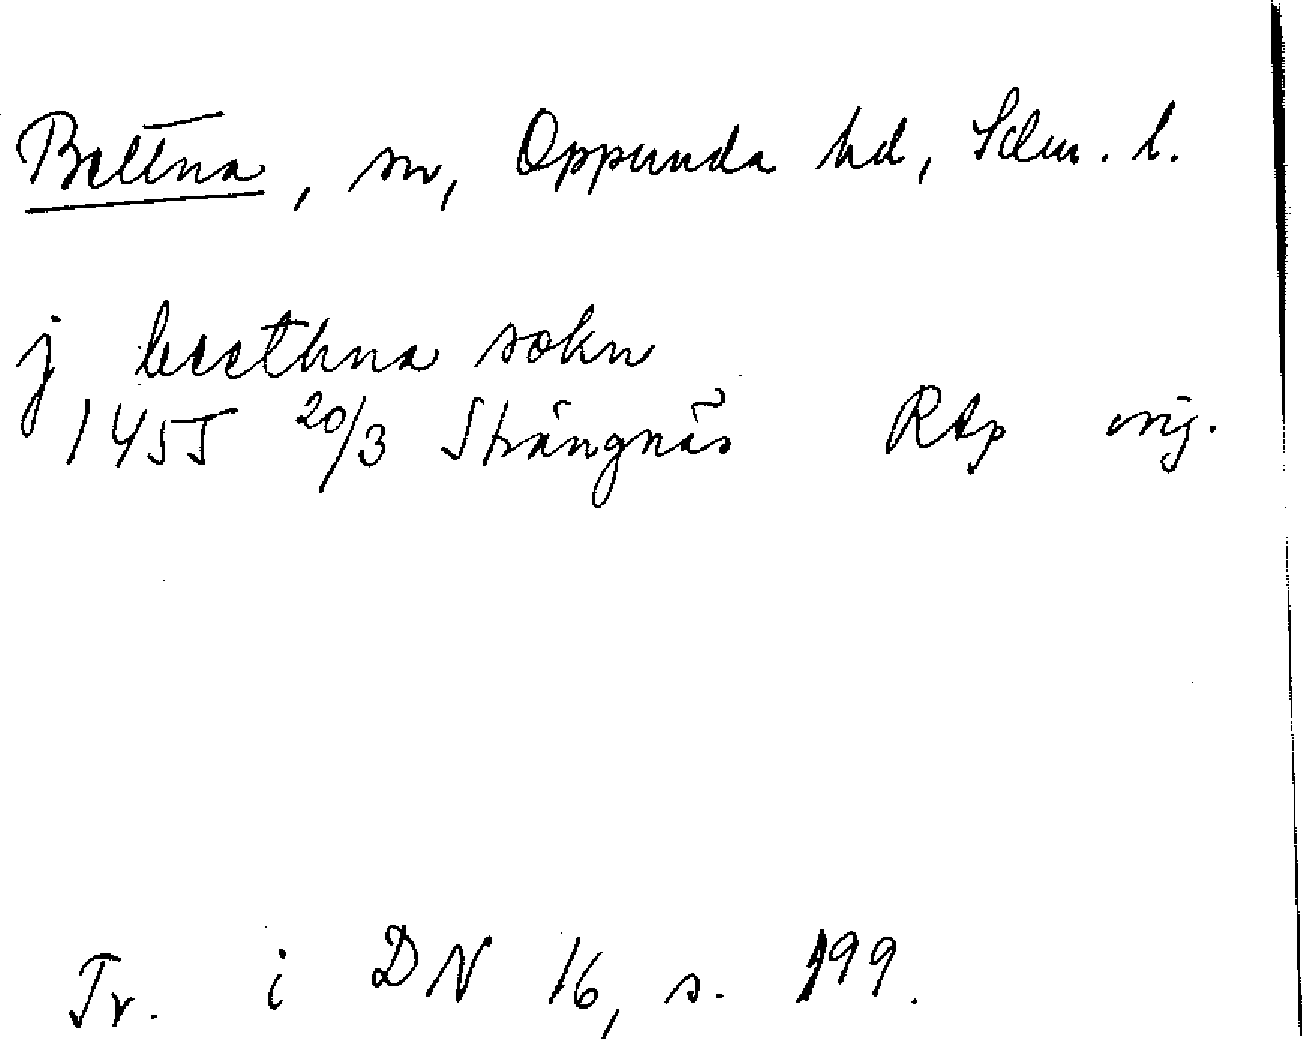 Bettna, sn, Oppunda hd, Sdm. l.
j beethna sokn
1455 20/3 Strängnäs RAp orig.
Tr. i DN 16, s. 199.